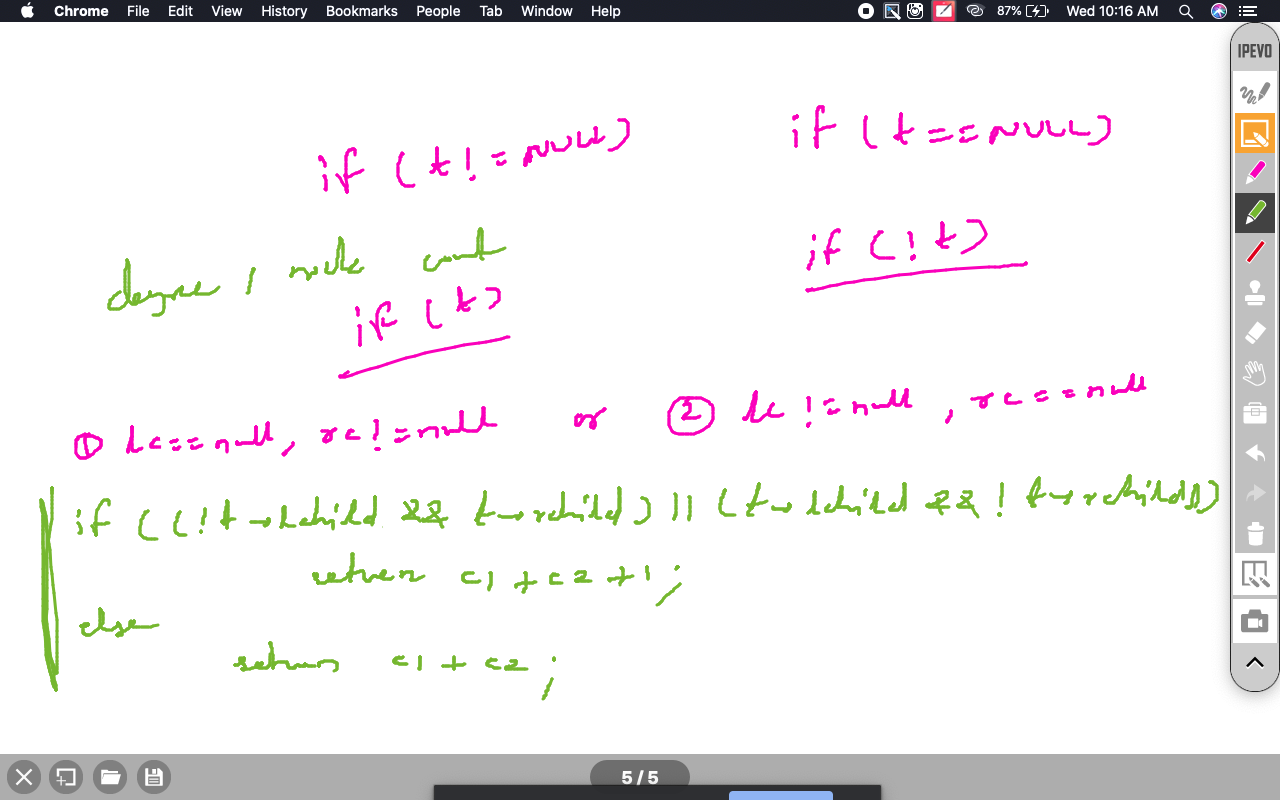 Chrome File Edit View History Bookmarks People Tab Window Help 87% Wed 10:16 AM
IPEVO
if (t!=NULL)
if (t==NULL)
degree 1 node count
if (!t)
if (t)
① lc==null, rc!=null or ② lc!=null, rc==null
if ((!t→lchild && t→rchild) || (t→lchild && !t→rchild))
return c1+c2+1;
else
return c1+c2;
5/5